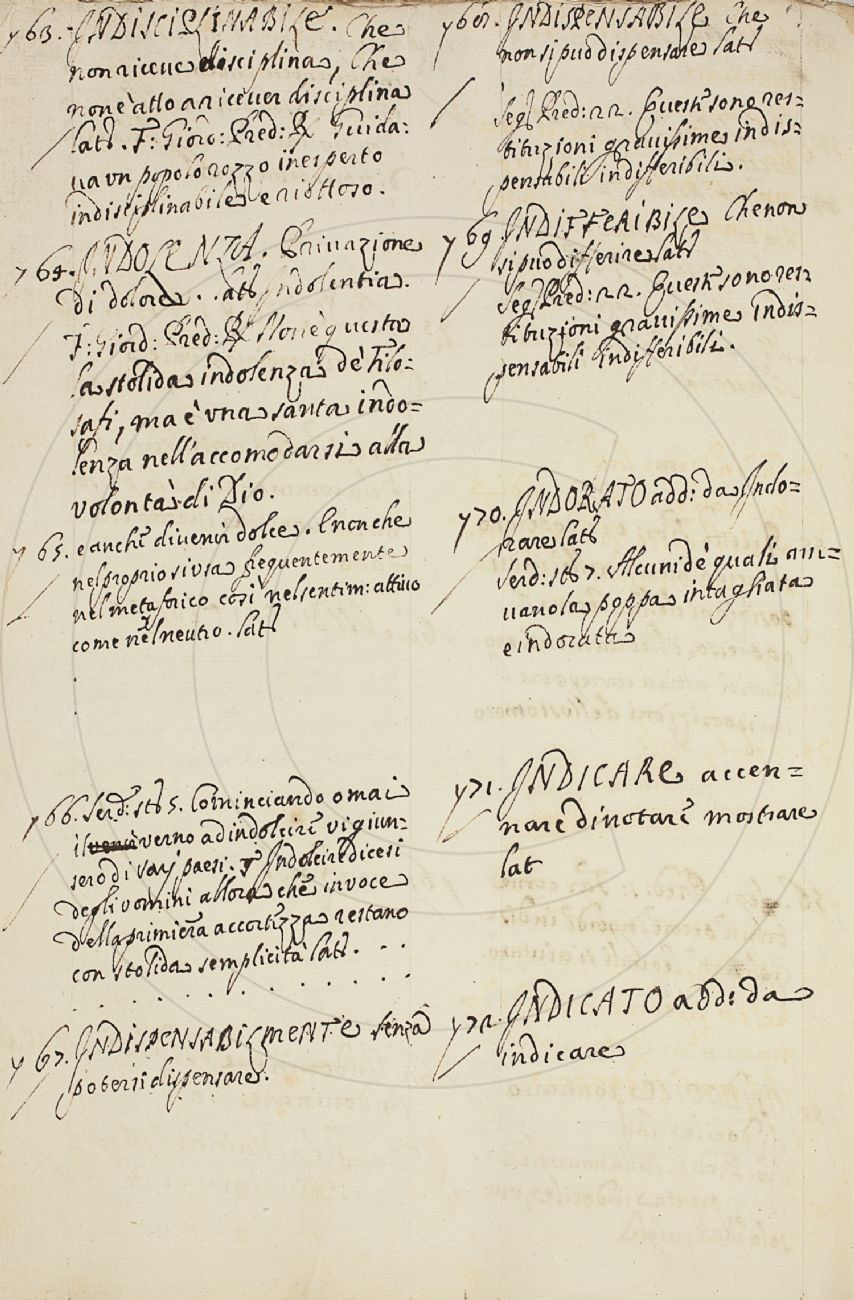 763. INDISCIPLINABILE. Che
non riceve disciplina, Che
non è atto a ricever disciplina
Latt. F: Gior: Pred: R Guida:
va vn popolo rozzo inesperto
indisciplinabile e riottoso.
764. INDOLENZA. Privazione
di dolore. Latt Indolentia.
F: Giord: Pred: R Non è questa
la stolida indolenza de' Filo:
safi, ma è vna santa indo=
lenza nell'accomodarsi alla
volontà di Dio.
765. e anche divenir dolce. E non che
nel proprio si vsa frequentemente
nel metaforico così nel sentim: attivo
come nel neutro. Latt
766. Serd: stt 5. Cominciando omai
il verno ad indolcire vi giun=
sero di varj paesi. Indolcire dicesi
degli vomini allora che in voce
della primiera accortezza restano
con stolida semplicità Latt. . .
767. INDISPENSABILMENTE senza
potersi dispensare.
768. INDISPENSABILE Che
non si può dispensare Latt
Seg Pred: 22. Queste sono res=
tituzioni gravissime indis=
pensabili indifferibili.
769. INDIFFERIBILE Che non
si può differire Latt
Seg Pred: 22. Queste sono res=
tituzioni gravissime indis=
pensabili indifferibili.
770. INDORATO add: da Indo=
rare Latt
Serd: stt 7. Alcuni de' quali am=
vano la poppa intagliata
e indorata
771. INDICARE accen=
nare dinotare mostrare
lat
772. INDICATO add: da
indicare